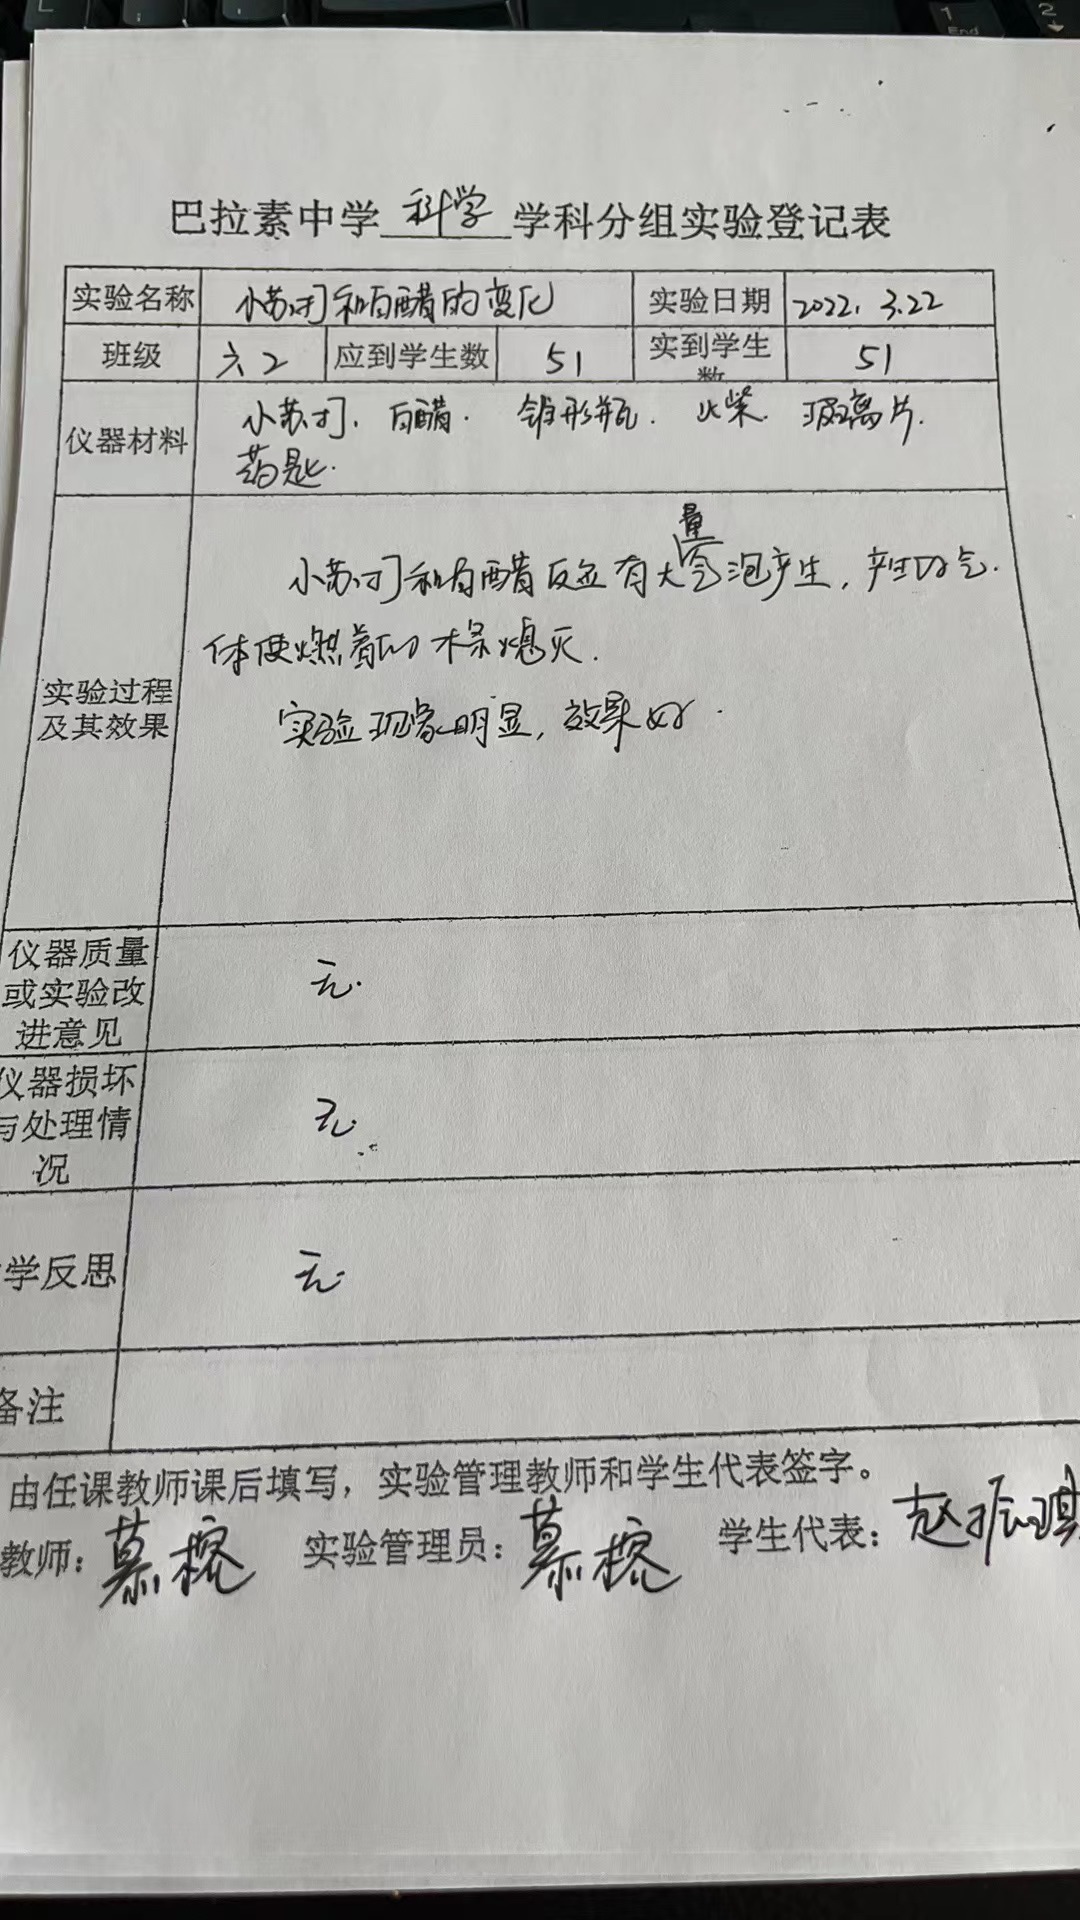 巴拉素中学科学学科分组实验登记表
实验名称 小苏打和白醋的变化 实验日期 2022.3.22
班级 六2 应到学生数 51 实到学生数 51
仪器材料 小苏打、白醋. 锥形瓶. 火柴. 玻璃片.
药匙.
小苏打和白醋反应有大量气泡产生,产生的气.
体使燃着的木条熄灭.
实验过程
及其效果
实验现象明显,效果好.
仪器质量
或实验改
进意见
无.
仪器损坏
与处理情
况
无.
学反思 无.
备注
由任课教师课后填写,实验管理教师和学生代表签字。
教师: 慕榕 实验管理员: 慕榕 学生代表: 赵振琪
1 End 2